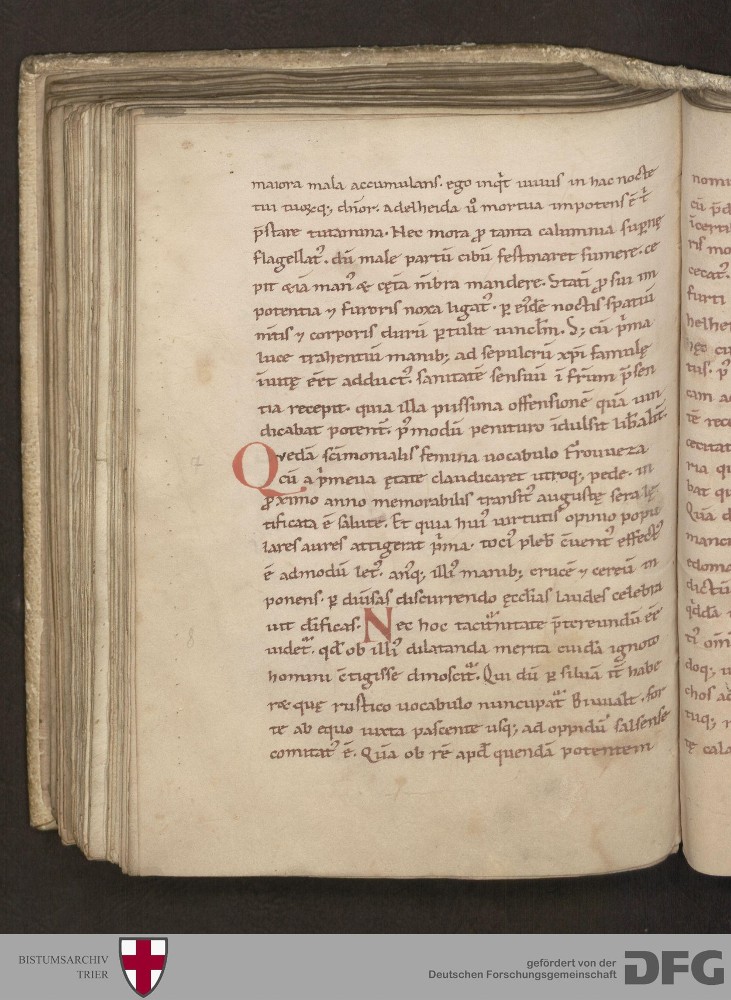 maiora mala accumulans. ego inq̄t uiuus in hac nocte
tui tuorq;, dn̄or. adelheida ū mortua inpotens ē t̄
p̄stare tutamina. Nec mora p̄ tanta calumnia supnę
flagellat᷒. dū male partū cibū festinaret sumere. ce
pit &iā man᷒ & cęta m̄bra mandere. Statī p̄ sui im
potentia ⁊ furoris noxa ligat᷒. ꝑ eidē noctis spatiū
m̄tis ⁊ corporis durū ꝑtulit uincl̄m. S; cū p̄ma
luce trahentiū manib; ad sepulcrū xp̄i famulę
īuitę eēt adduct᷒. sanitatē sensuū ī fr̄um p̄sen
tia recepit. quia illa piissima offensionē quā uin
dicabat potent᷒. p̄modū penituro īdulsit lib̄alit᷒.
Quedā sc̄imonialis femina uocabulo Frouueza
cū a p̄meua ętate claudicaret utroq; pede. in
ꝓximo anno memorabilis transit᷒ augustę sera lę
tificata ē salute. Et quia hui᷒ uirtutis opinio popu
lares aures attigerat p̄ma. toci᷒ pleb̄ c̄uent᷒ effect᷒
ē admodū let᷒. atq; illi᷒ manib; crucē ⁊ cereū in
ponens. ꝑ diuisas discurrendo ęcclias laudes celebra
uit d̄ificas. Nec hoc taciturnitate p̄tereundū eē
uidet᷒. qd̄ ob illi᷒ dilatanda merita cuidā ignoto
homini c̄tigisse dinoscit᷒. Qui dū ꝑ siluā it̄ habe
ret quę rustico uocabulo nuncupat᷒ Biuualt. for
te ab equo iuxta pascente usq; ad oppidū salsense
comitat᷒ ē. Quā ob rē apd̄ quendā potentem
BISTUMSARCHIV
TRIER
gefördert von der
Deutschen Forschungsgemeinschaft
DFG